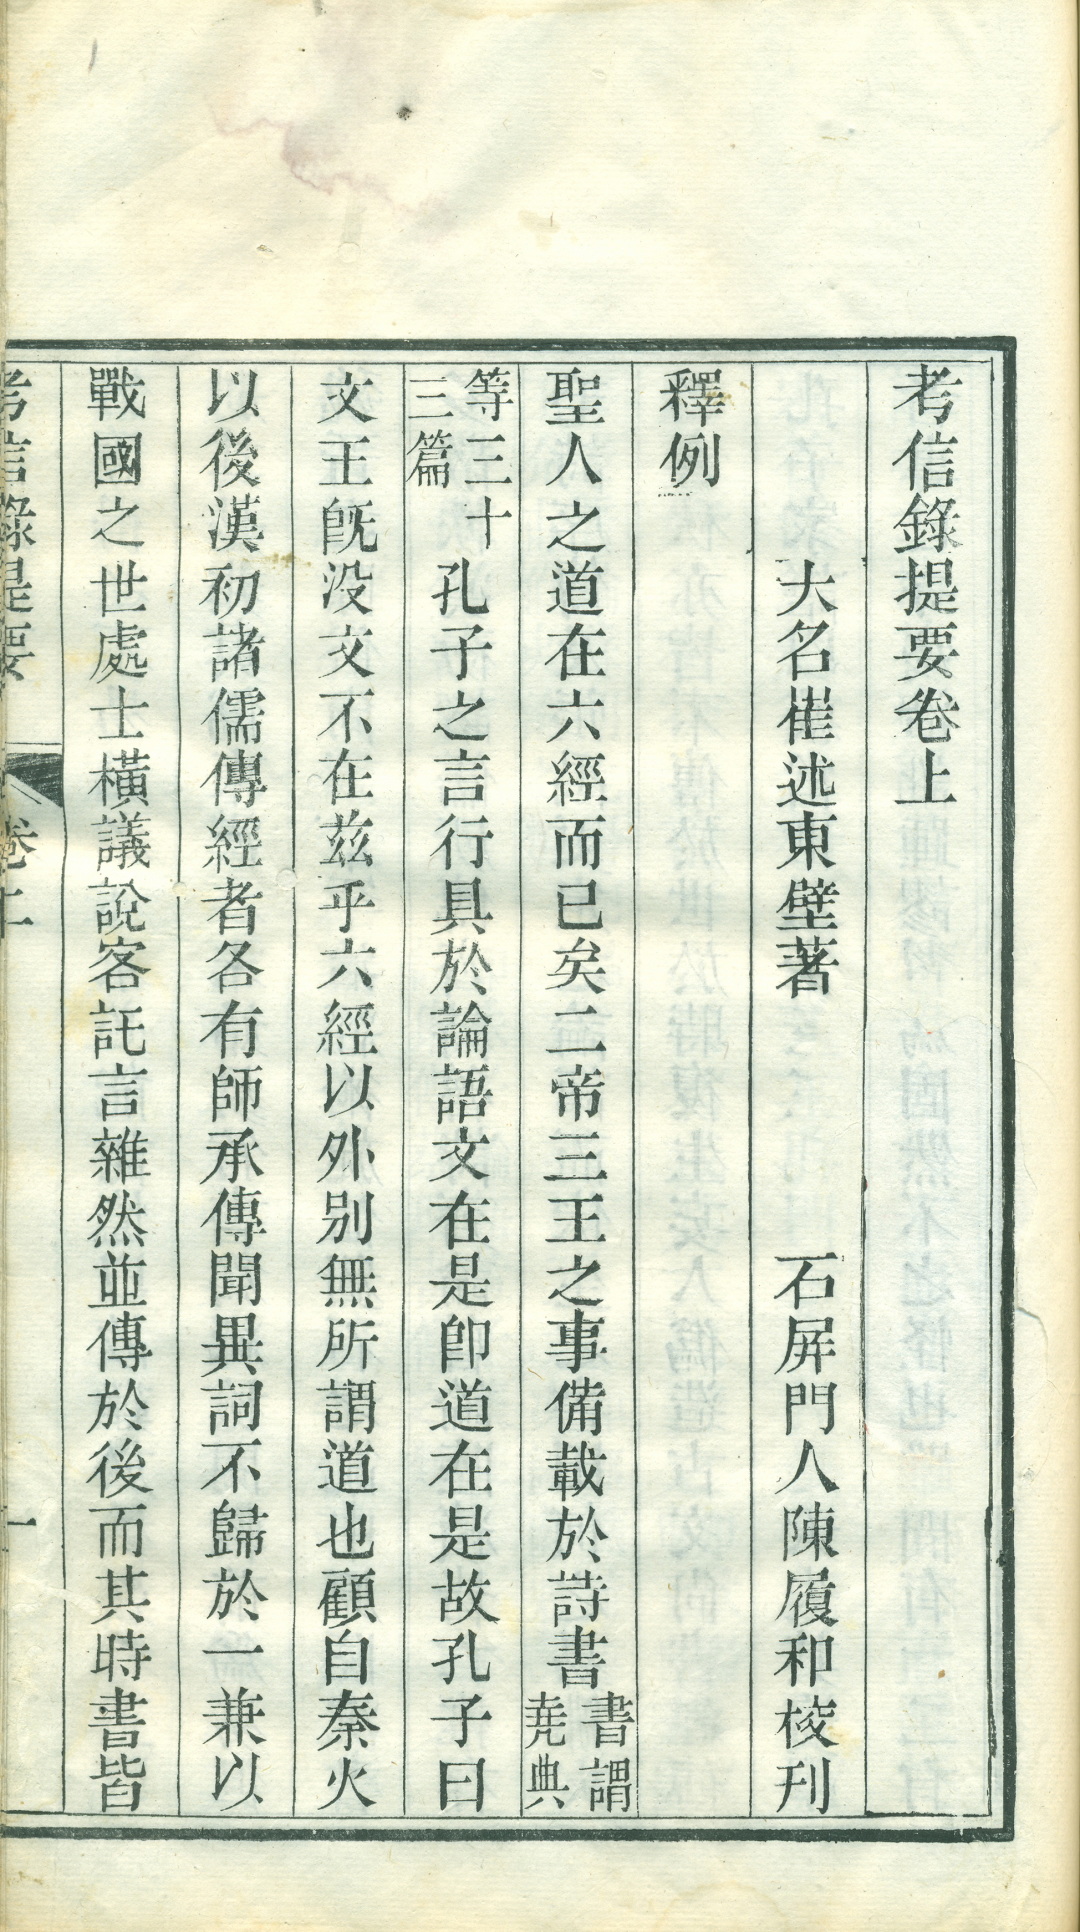 考信錄提要卷上
大名崔述東壁著　石屏門人陳履和校刊
釋例
聖人之道在六經而已矣二帝三王之事備載於詩書書謂堯典
等三十三篇孔子之言行具於論語文在是卽道在是故孔子曰
文王旣没文不在茲乎六經以外别無所謂道也顧自秦火
以後漢初諸儒傳經者各有師承傳聞異詞不歸於一兼以
戰國之世處士橫議說客託言雜然並傳於後而其時書皆
考信錄提要　卷上　一